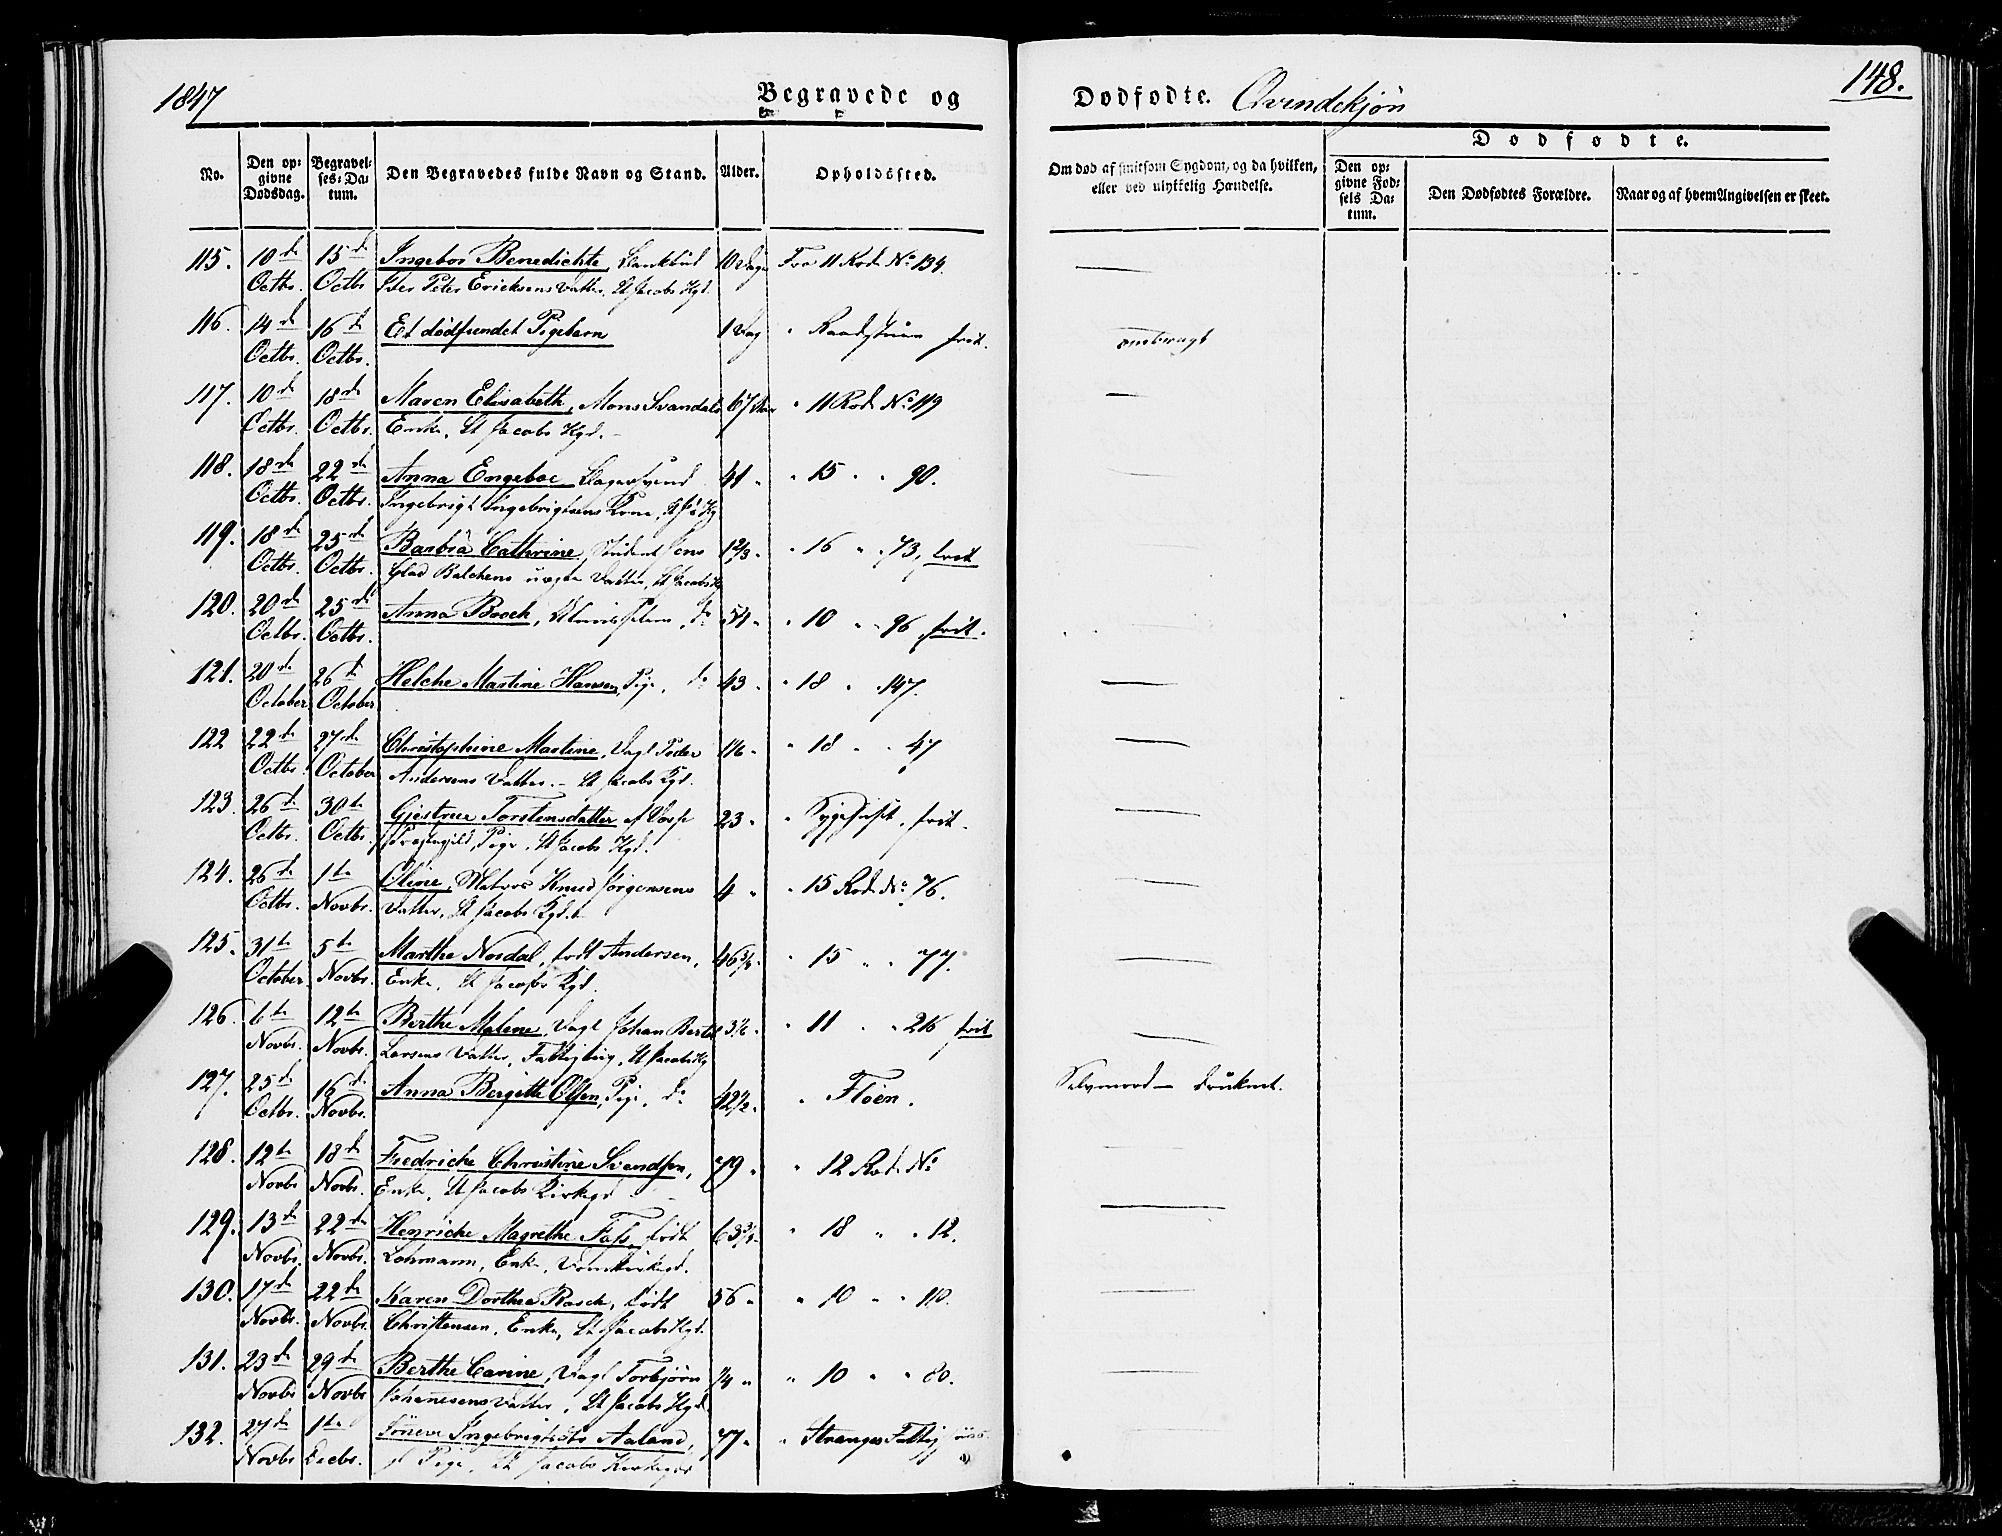 1847
Begravede og
Dødfødte. Qvindekjøn
148.
No.
Den opgivne Dødsdag.
Begravelses-Datum.
Den Begravedes fulde Navn og Stand.
Alder.
Opholdssted.
Om død af smitsom Sygdom, og da hvilken, eller ved ulykkelig Hændelse.
Dødfødte.
Den opgivne Fødsels Datum.
Den Dødfødtes Forældre.
Naar og af hvem Angivelsen er skeet.
115. 10de 15de Ingebor Benedichte, 10 Dage Fra 11 Rode No 134.
Octbr. Octbr Peter Ericksens Datter, St Jacobs Kgd.
116. 14de 16de Et dødfundet Pigebarn 1 Dag " Raadstuen frit. ombragt
Octbr. Octbr.
117. 10de 18de Maren Elisabeth, Mons Svandals 67 Aar " 11 Rode No 119
Octbr. Octbr. Enke, St Jacobs Kgd.
118. 18de 22de Anna Engebor 41 " " 15 " " 90.
Octbr. Octbr. Ingebrigt Ingebrigtsens Kone, St J's Kg
119. 18de 25de Barbra Cathrine, Student Jens 1 2/3 " " 16 " " 73, frit
Octbr. Octbr. Balchens uægte Datter, St Jacobs Kg
120. 20de 25de Anna Brock, do 54 " " 10 " " 96 frit.
Octbr. Octbr.
121. 20de 26de Helche Martine Hansen, Pige, do 43 " " 18 " " 147.
October October
122 22de 27de Christophine Martine, Dagl Peder " " 18 " " 47
Octbr. October Andersens Datter. St Jacobs Kgd.
123. 26de 30te Gjertrue Torstensdatter af Voss 23 " " Sygehuset, frit.
Octbr. Octbr. Præstegjeld, Pige, St Jacobs Kgd.
124. 26de 1te Oline, Matros Knud Jørgensens 4 " " 15 Rode No 76.
Octbr. Novbr. Datter, St Jacobs Kgd.
125. 31te 5te Marthe Nordal, født Andersen, " 15 " " 77.
October Novbr. Enke, St Jacobs Kgd.
126. 6te 12te Berthe Malene, Dagl Johan Bertel 3 1/2 " " 11 " " 216 frit
Novbr. Novbr. Larsens Datter, St Jacobs Kg
127. 25de 16de Anna Bergitte Olsen, Pige, do 42 1/2 " " Fløen. Selvmord – druknet.
Octbr. Novbr.
128. 12te 18de Fredriche Christine Svendsen, 79 " " 12 Rode No
Novbr Novbr. Enke, St Jacobs Kirkegd
129. 13de 22de Henriche Magrethe Fass, født " 18 " " 12.
Novbr. Novbr. Lohmann, Enke, Domkirkegd.
130. 17de 22de Karen Dorthea Rasch, født 56 " " 10 " " 110.
Novbr. Novbr. Christensen, Enke, St Jacobs Kgd.
131. 23de 29de Berthe Carine, Dagl Torbjørn " " 10 " " 80.
Novbr Novbr Johannesens Datter, St Jacobs Kgd.
132. 27de 1te Sønneve Aaland, 77 " " Stranges Fattig
Novbr Decbr. Pige, St Jacobs Kirkegd